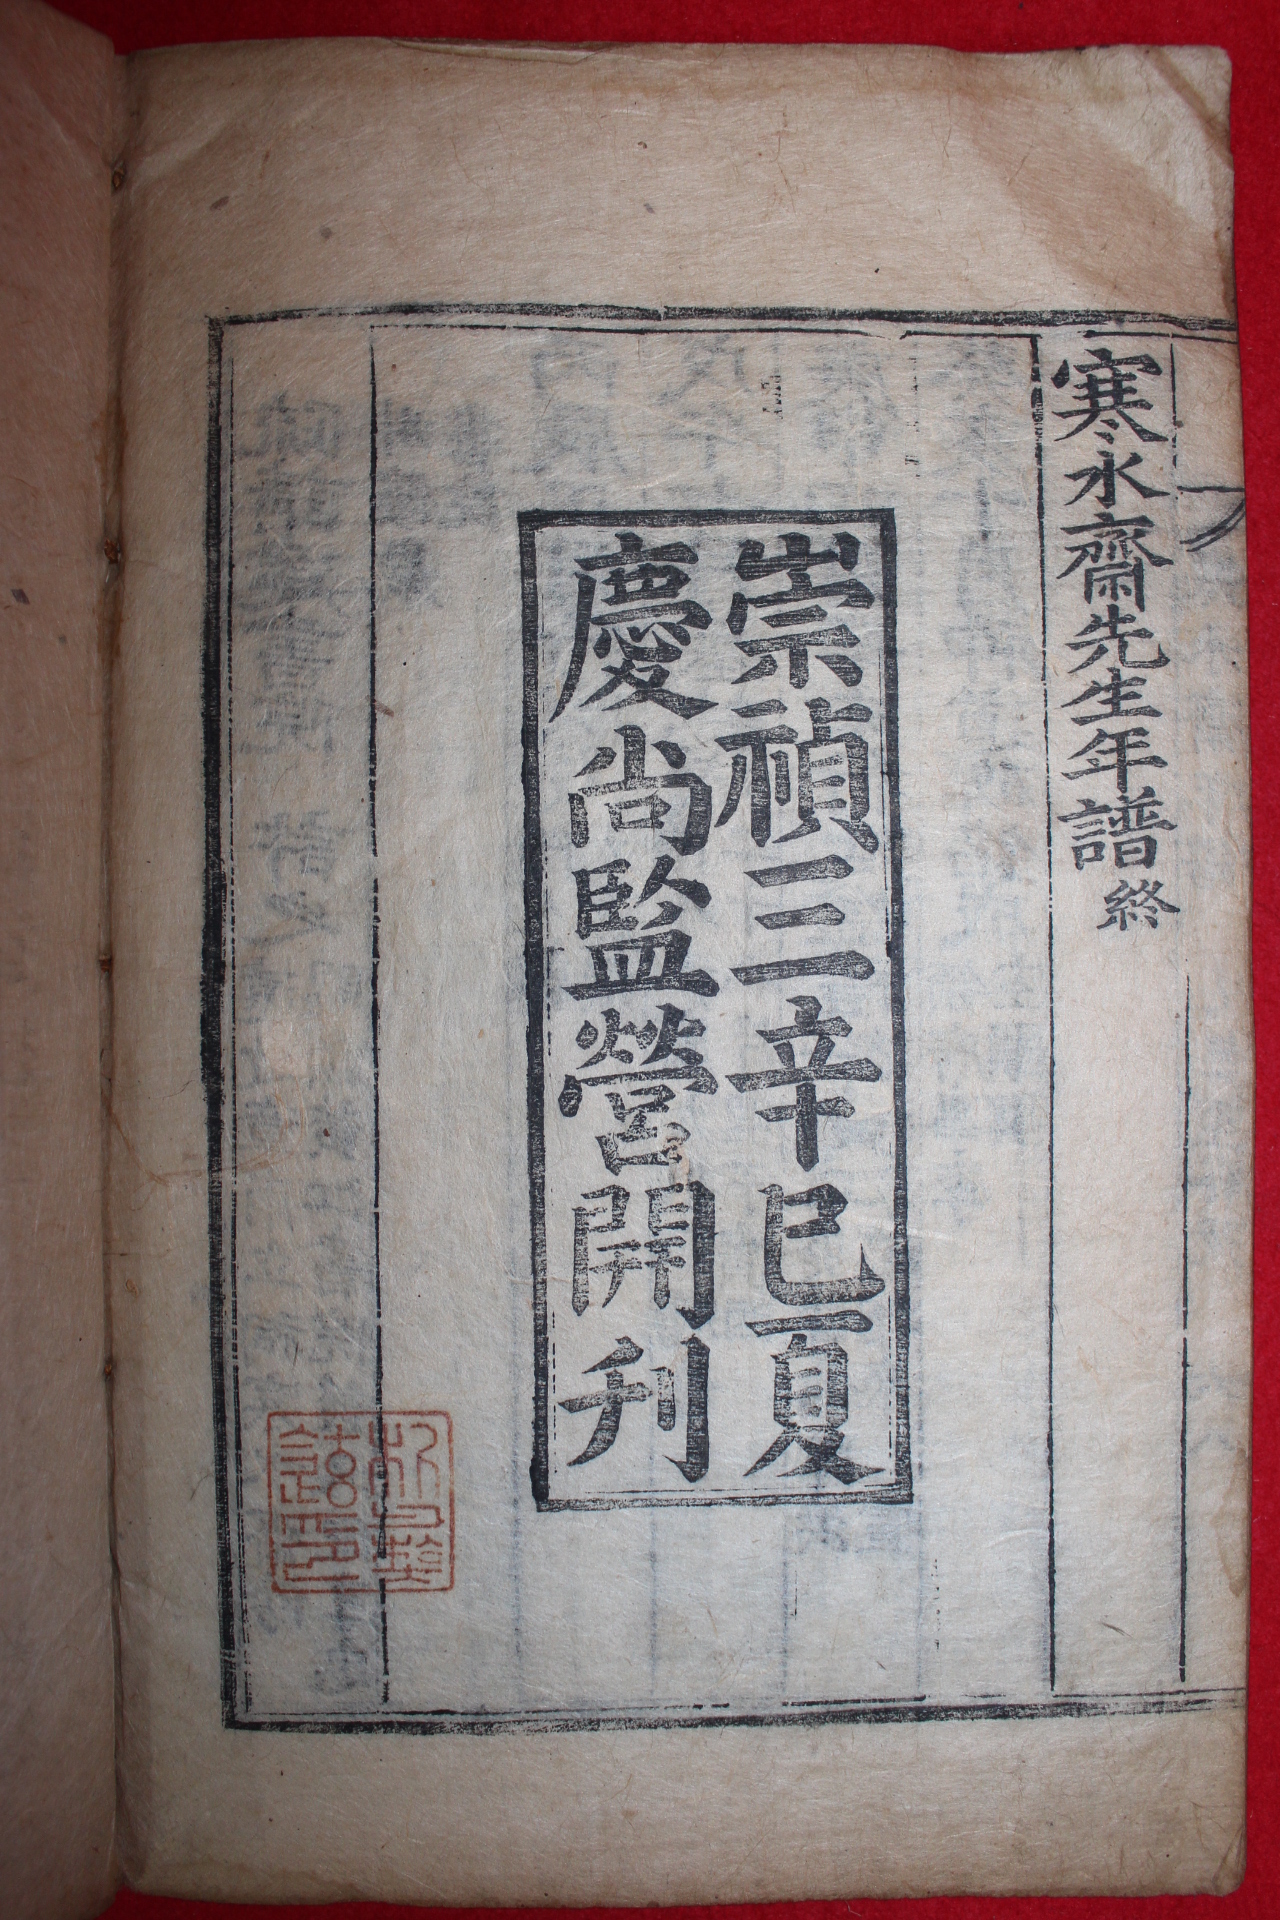 寒水齋先生年譜 終
崇禎三辛巳夏
慶尚監營開刊